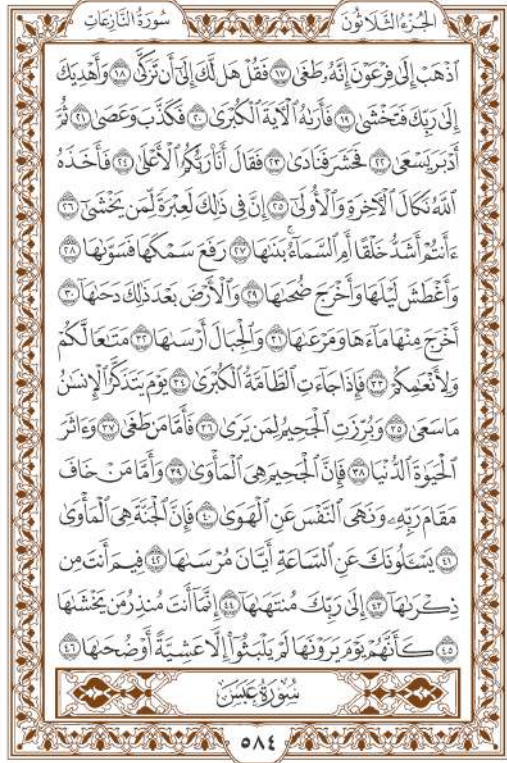 الجُزْءُ الثَّلَاثُونَ
سُورَةُ النَّازِعَاتِ
ٱذۡهَبۡ إِلَىٰ فِرۡعَوۡنَ إِنَّهُۥ طَغَىٰ ١٧ فَقُلۡ هَل لَّكَ إِلَىٰٓ أَن تَزَكَّىٰ ١٨ وَأَهۡدِيَكَ
إِلَىٰ رَبِّكَ فَتَخۡشَىٰ ١٩ فَأَرَىٰهُ ٱلۡأٓيَةَ ٱلۡكُبۡرَىٰ ٢٠ فَكَذَّبَ وَعَصَىٰ ٢١ ثُمَّ
أَدۡبَرَ يَسۡعَىٰ ٢٢ فَحَشَرَ فَنَادَىٰ ٢٣ فَقَالَ أَنَا۠ رَبُّكُمُ ٱلۡأَعۡلَىٰ ٢٤ فَأَخَذَهُ
ٱللَّهُ نَكَالَ ٱلۡأٓخِرَةِ وَٱلۡأُولَىٰٓ ٢٥ إِنَّ فِي ذَٰلِكَ لَعِبۡرَةٗ لِّمَن يَخۡشَىٰٓ ٢٦
ءَأَنتُمۡ أَشَدُّ خَلۡقًا أَمِ ٱلسَّمَآءُۚ بَنَىٰهَا ٢٧ رَفَعَ سَمۡكَهَا فَسَوَّىٰهَا ٢٨
وَأَغۡطَشَ لَيۡلَهَا وَأَخۡرَجَ ضُحَىٰهَا ٢٩ وَٱلۡأَرۡضَ بَعۡدَ ذَٰلِكَ دَحَىٰهَآ ٣٠
أَخۡرَجَ مِنۡهَا مَآءَهَا وَمَرۡعَىٰهَا ٣١ وَٱلۡجِبَالَ أَرۡسَىٰهَا ٣٢ مَتَٰعٗا لَّكُمۡ
وَلِأَنۡعَٰمِكُمۡ ٣٣ فَإِذَا جَآءَتِ ٱلطَّآمَّةُ ٱلۡكُبۡرَىٰ ٣٤ يَوۡمَ يَتَذَكَّرُ ٱلۡإِنسَٰنُ
مَا سَعَىٰ ٣٥ وَبُرِّزَتِ ٱلۡجَحِيمُ لِمَن يَرَىٰ ٣٦ فَأَمَّا مَن طَغَىٰ ٣٧ وَءَاثَرَ
ٱلۡحَيَوٰةَ ٱلدُّنۡيَا ٣٨ فَإِنَّ ٱلۡجَحِيمَ هِيَ ٱلۡمَأۡوَىٰ ٣٩ وَأَمَّا مَنۡ خَافَ
مَقَامَ رَبِّهِۦ وَنَهَى ٱلنَّفۡسَ عَنِ ٱلۡهَوَىٰ ٤٠ فَإِنَّ ٱلۡجَنَّةَ هِيَ ٱلۡمَأۡوَىٰ
٤١ يَسۡـَٔلُونَكَ عَنِ ٱلسَّاعَةِ أَيَّانَ مُرۡسَىٰهَا ٤٢ فِيمَ أَنتَ مِن
ذِكۡرَىٰهَآ ٤٣ إِلَىٰ رَبِّكَ مُنتَهَىٰهَآ ٤٤ إِنَّمَآ أَنتَ مُنذِرُ مَن يَخۡشَىٰهَا
٤٥ كَأَنَّهُمۡ يَوۡمَ يَرَوۡنَهَا لَمۡ يَلۡبَثُوٓاْ إِلَّا عَشِيَّةً أَوۡ ضُحَىٰهَا ٤٦
سُورَةُ عَبَسَ
٥٨٤